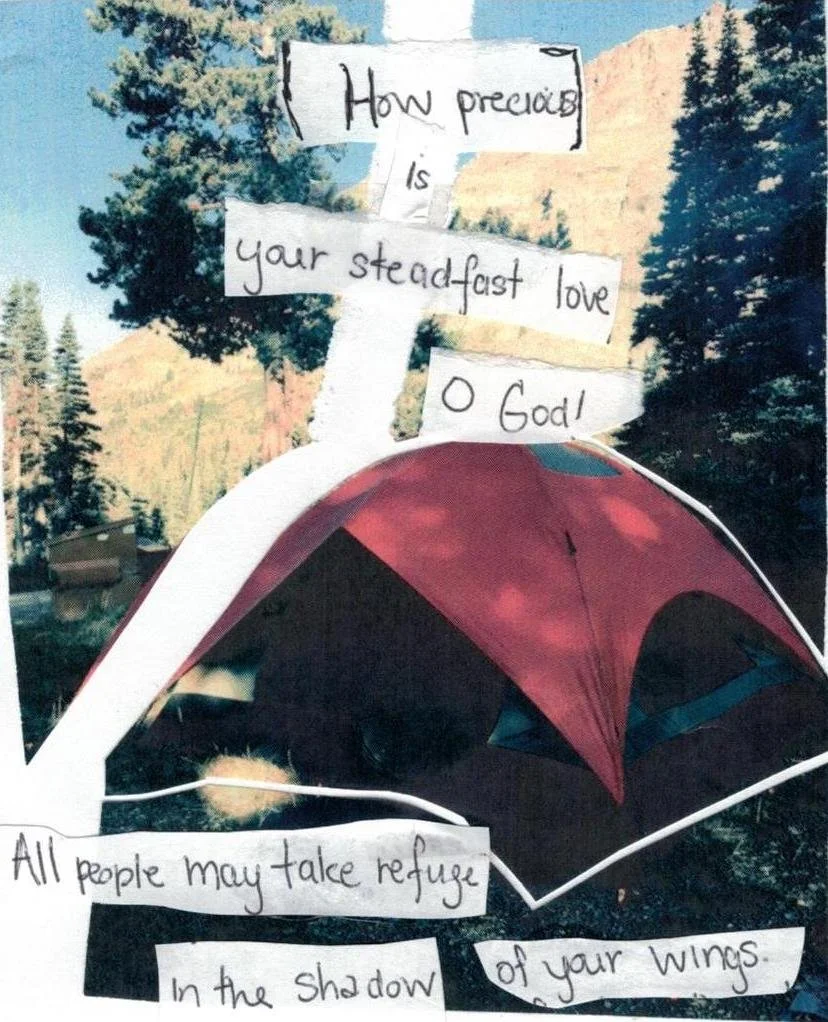 How precious
is
your steadfast love
O God!
All people may take refuge
in the shadow
of your wings.